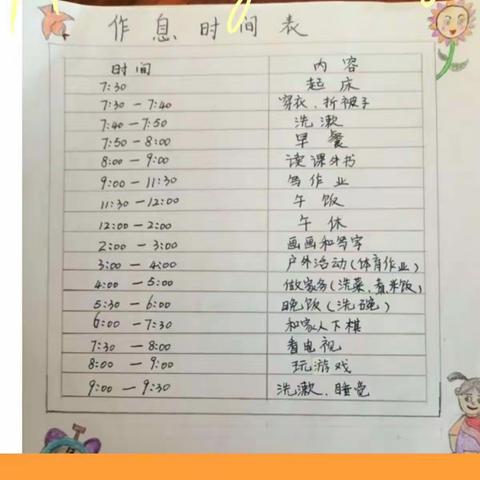 作息时间表
时间 内容
7:30 起床
7:30 - 7:40 穿衣、折被子
7:40 - 7:50 洗漱
7:50 - 8:00 早餐
8:00 - 9:00 读课外书
9:00 - 11:30 写作业
11:30 - 12:00 午饭
12:00 - 2:00 午休
2:00 - 3:00 画画和写字
3:00 - 4:00 户外活动(体育作业)
4:00 - 5:00 做家务(洗菜、煮米饭)
5:30 - 6:00 晚饭(洗碗)
6:00 - 7:30 和家人下棋
7:30 - 8:00 看电视
8:00 - 9:00 玩游戏
9:00 - 9:30 洗漱、睡觉